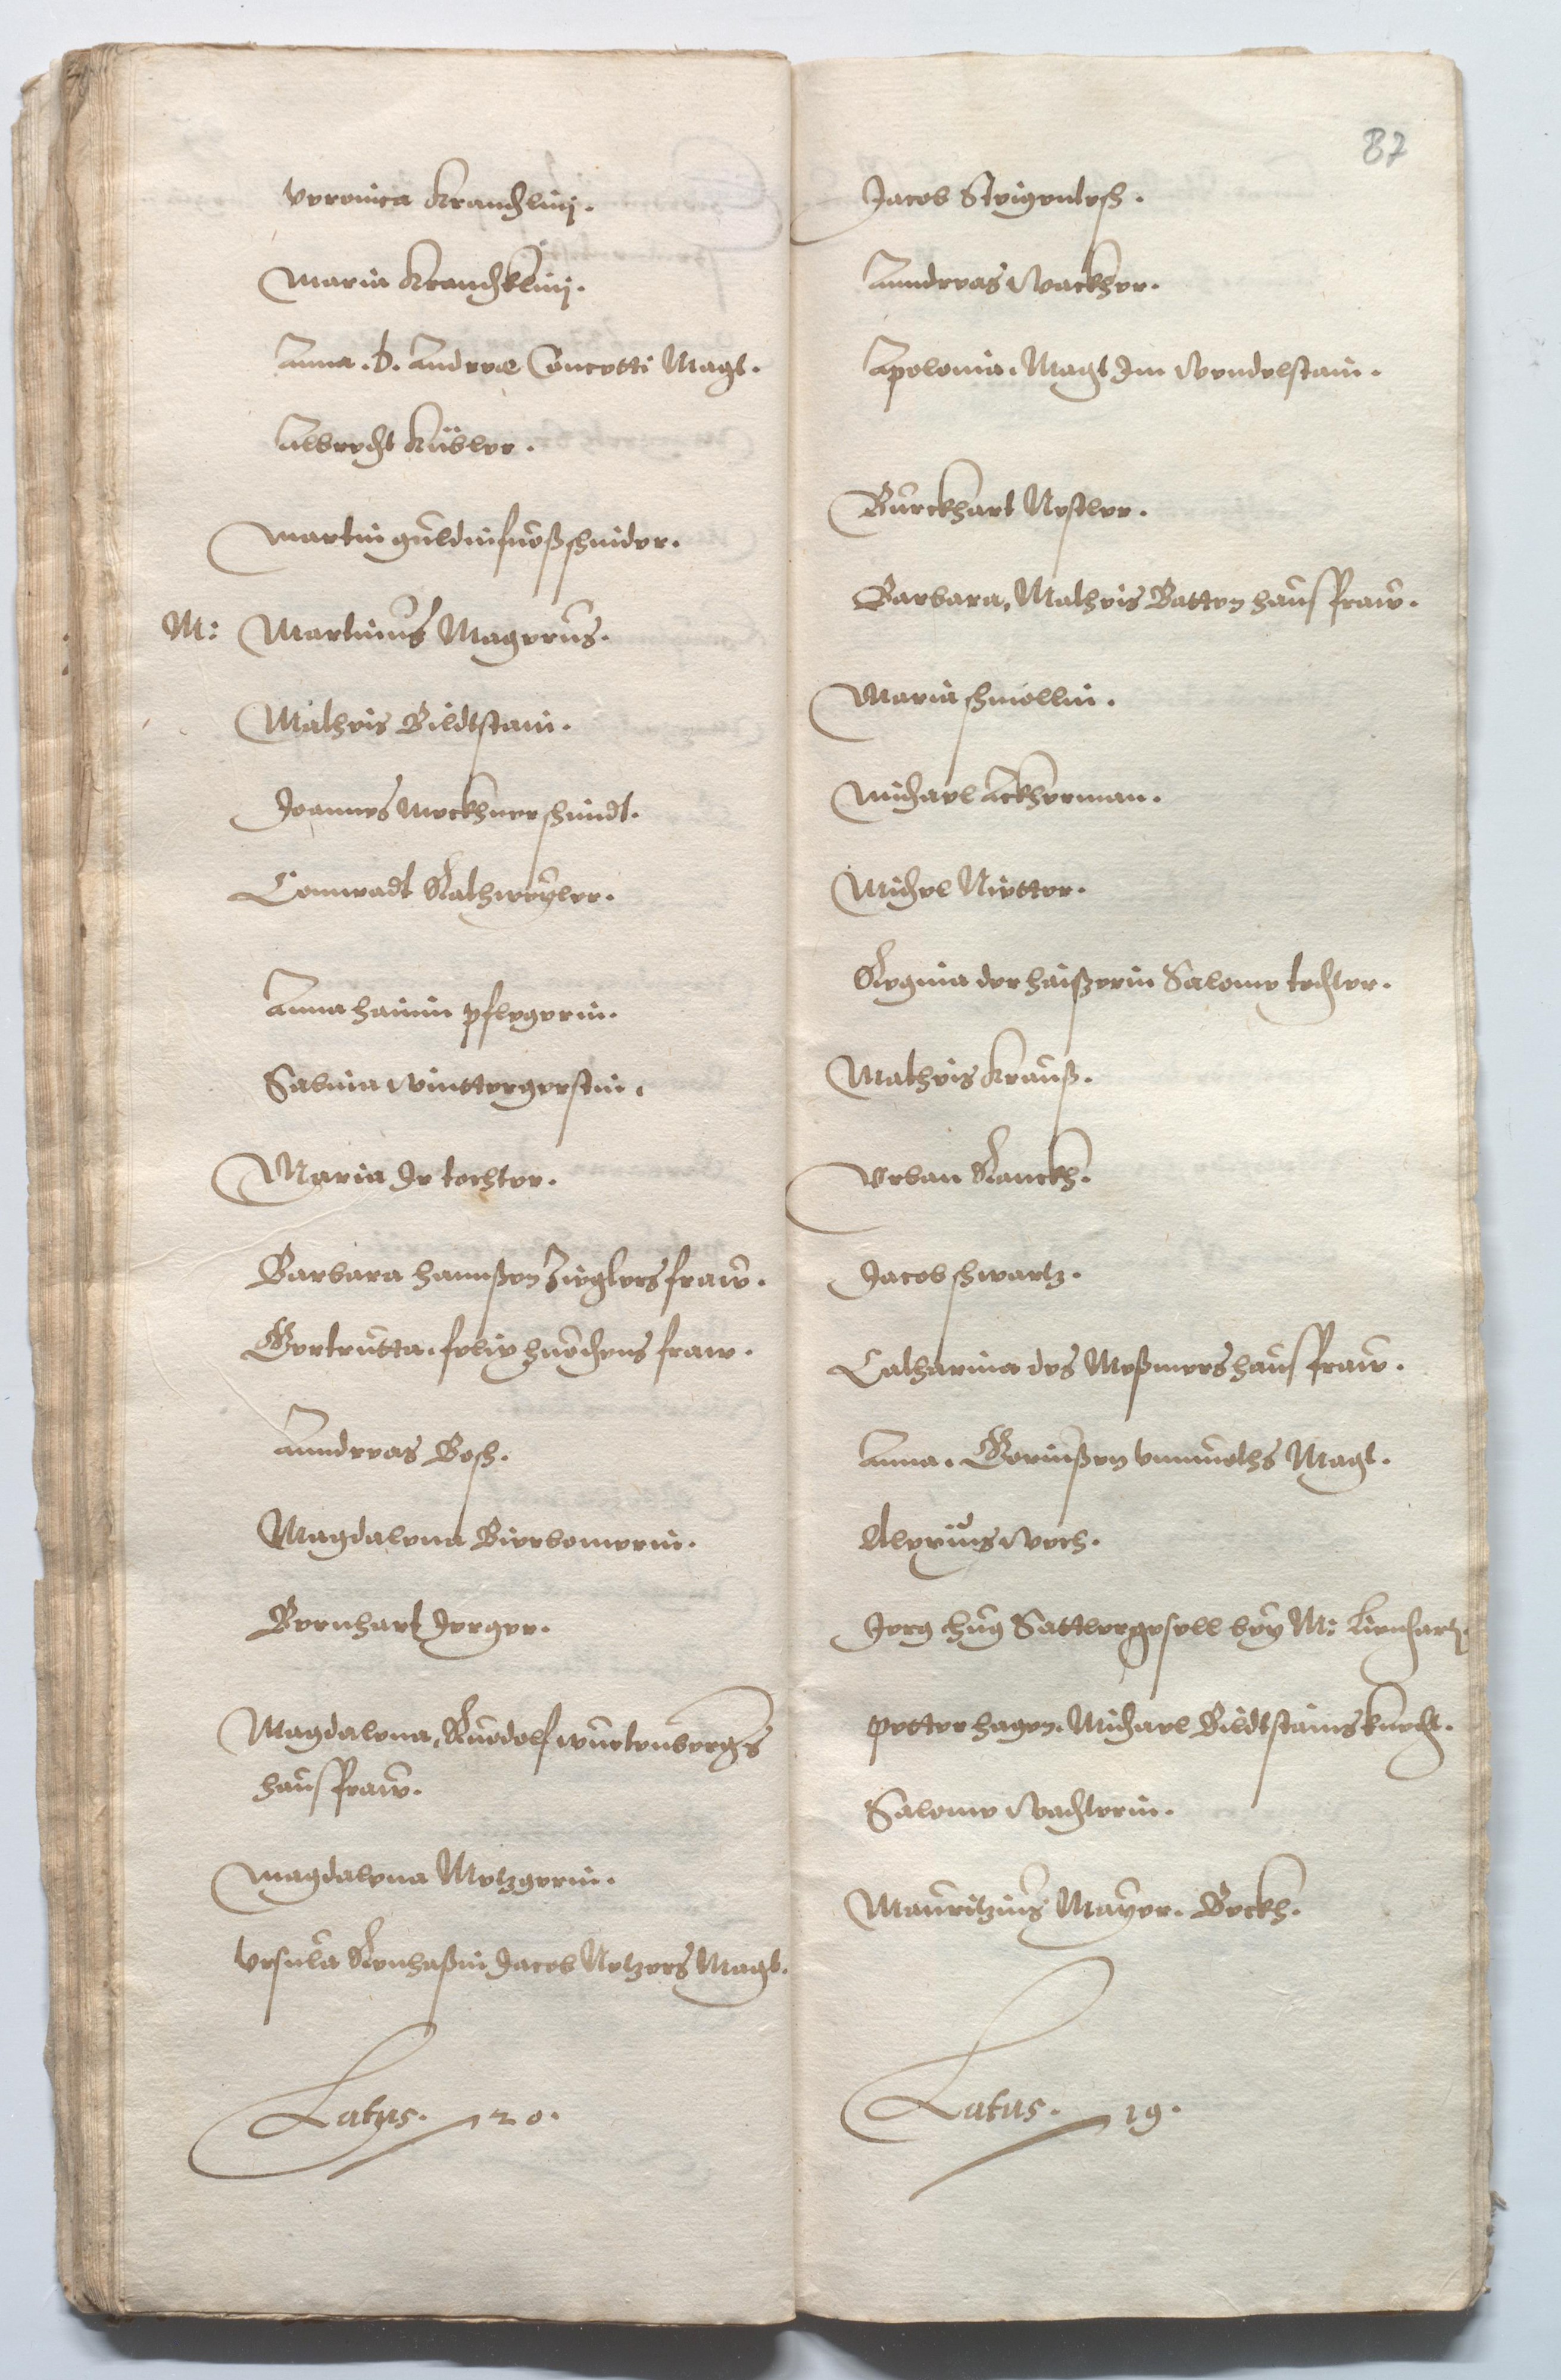 Veronica Krauchlinj.
Maria Krauchklinj.
Anna. D. Andreæ Concetti Magt.
Albrecht Kübler.
Martin güldinfuoßschnider.
M: Martinus Magerus.
Matheis Bildtstain.
Joannes Meckhnerschmidt.
Connradt Rathweyler.
Anna hainin pflegerin.
Sabina Wintttergerstin.
Maria Ir tochter.
Barbara hannßen Zieglers fraw.
Gertrutta. felix huochens fraw.
Anndreas Bosch.
Magdalena Bierbomerin.
Bernhart Jerger.
Magdalena, Ruodolf würtenbergs
hausfraw.
Magdalena Metzgerin.
Vrsula Renhaßin Jacob Netzers Magt.
Latus. 20.
87
Jacob Steigentesch.
Anndreas Wackher.
Apolonia. Magt Im Wendelstain.
Burckhart Nestler.
Barbara, Matheis Batten hausfraw.
Maria schmollin.
Michael Ackherman.
Michel Rietter.
Regina der haißerin Salome tochter.
Matheis Krauß.
Vrban Ranckh.
Jacob schwartz.
Catharina des Meßmers hausfraw.
Anna. Gorinßen vnmuoths Magt.
Alexius Wech.
Jerg hug Sattlergesell bey M: Lienhart.
Petter hagen. Michael Bildtstains knecht.
Salome Wachterin.
Mauritzius Mayer. Beckh.
Latus. 19.